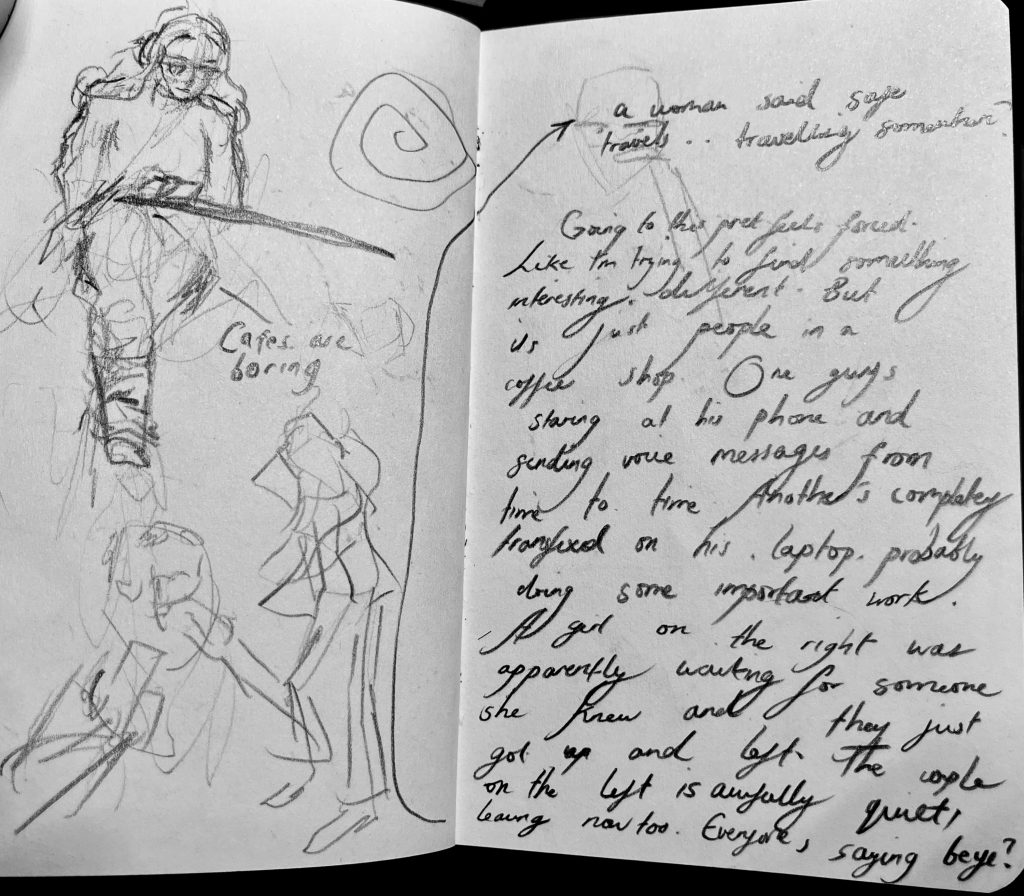 Cafes are
boring
a woman said safe
travels.. travelling somewhere?
Going to this pret feels forced.
Like I'm trying to find something
interesting. different. But
its just people in a
coffee shop. One guys
staring at his phone and
sending voice messages from
time to time Another's completely
transfixed on his laptop. probably
doing some important work.
A girl on the right was
apparently waiting for someone
she knew and they just
got up and left. The couple
on the left is awfully quiet,
leaving now too. Everyone, saying beye?